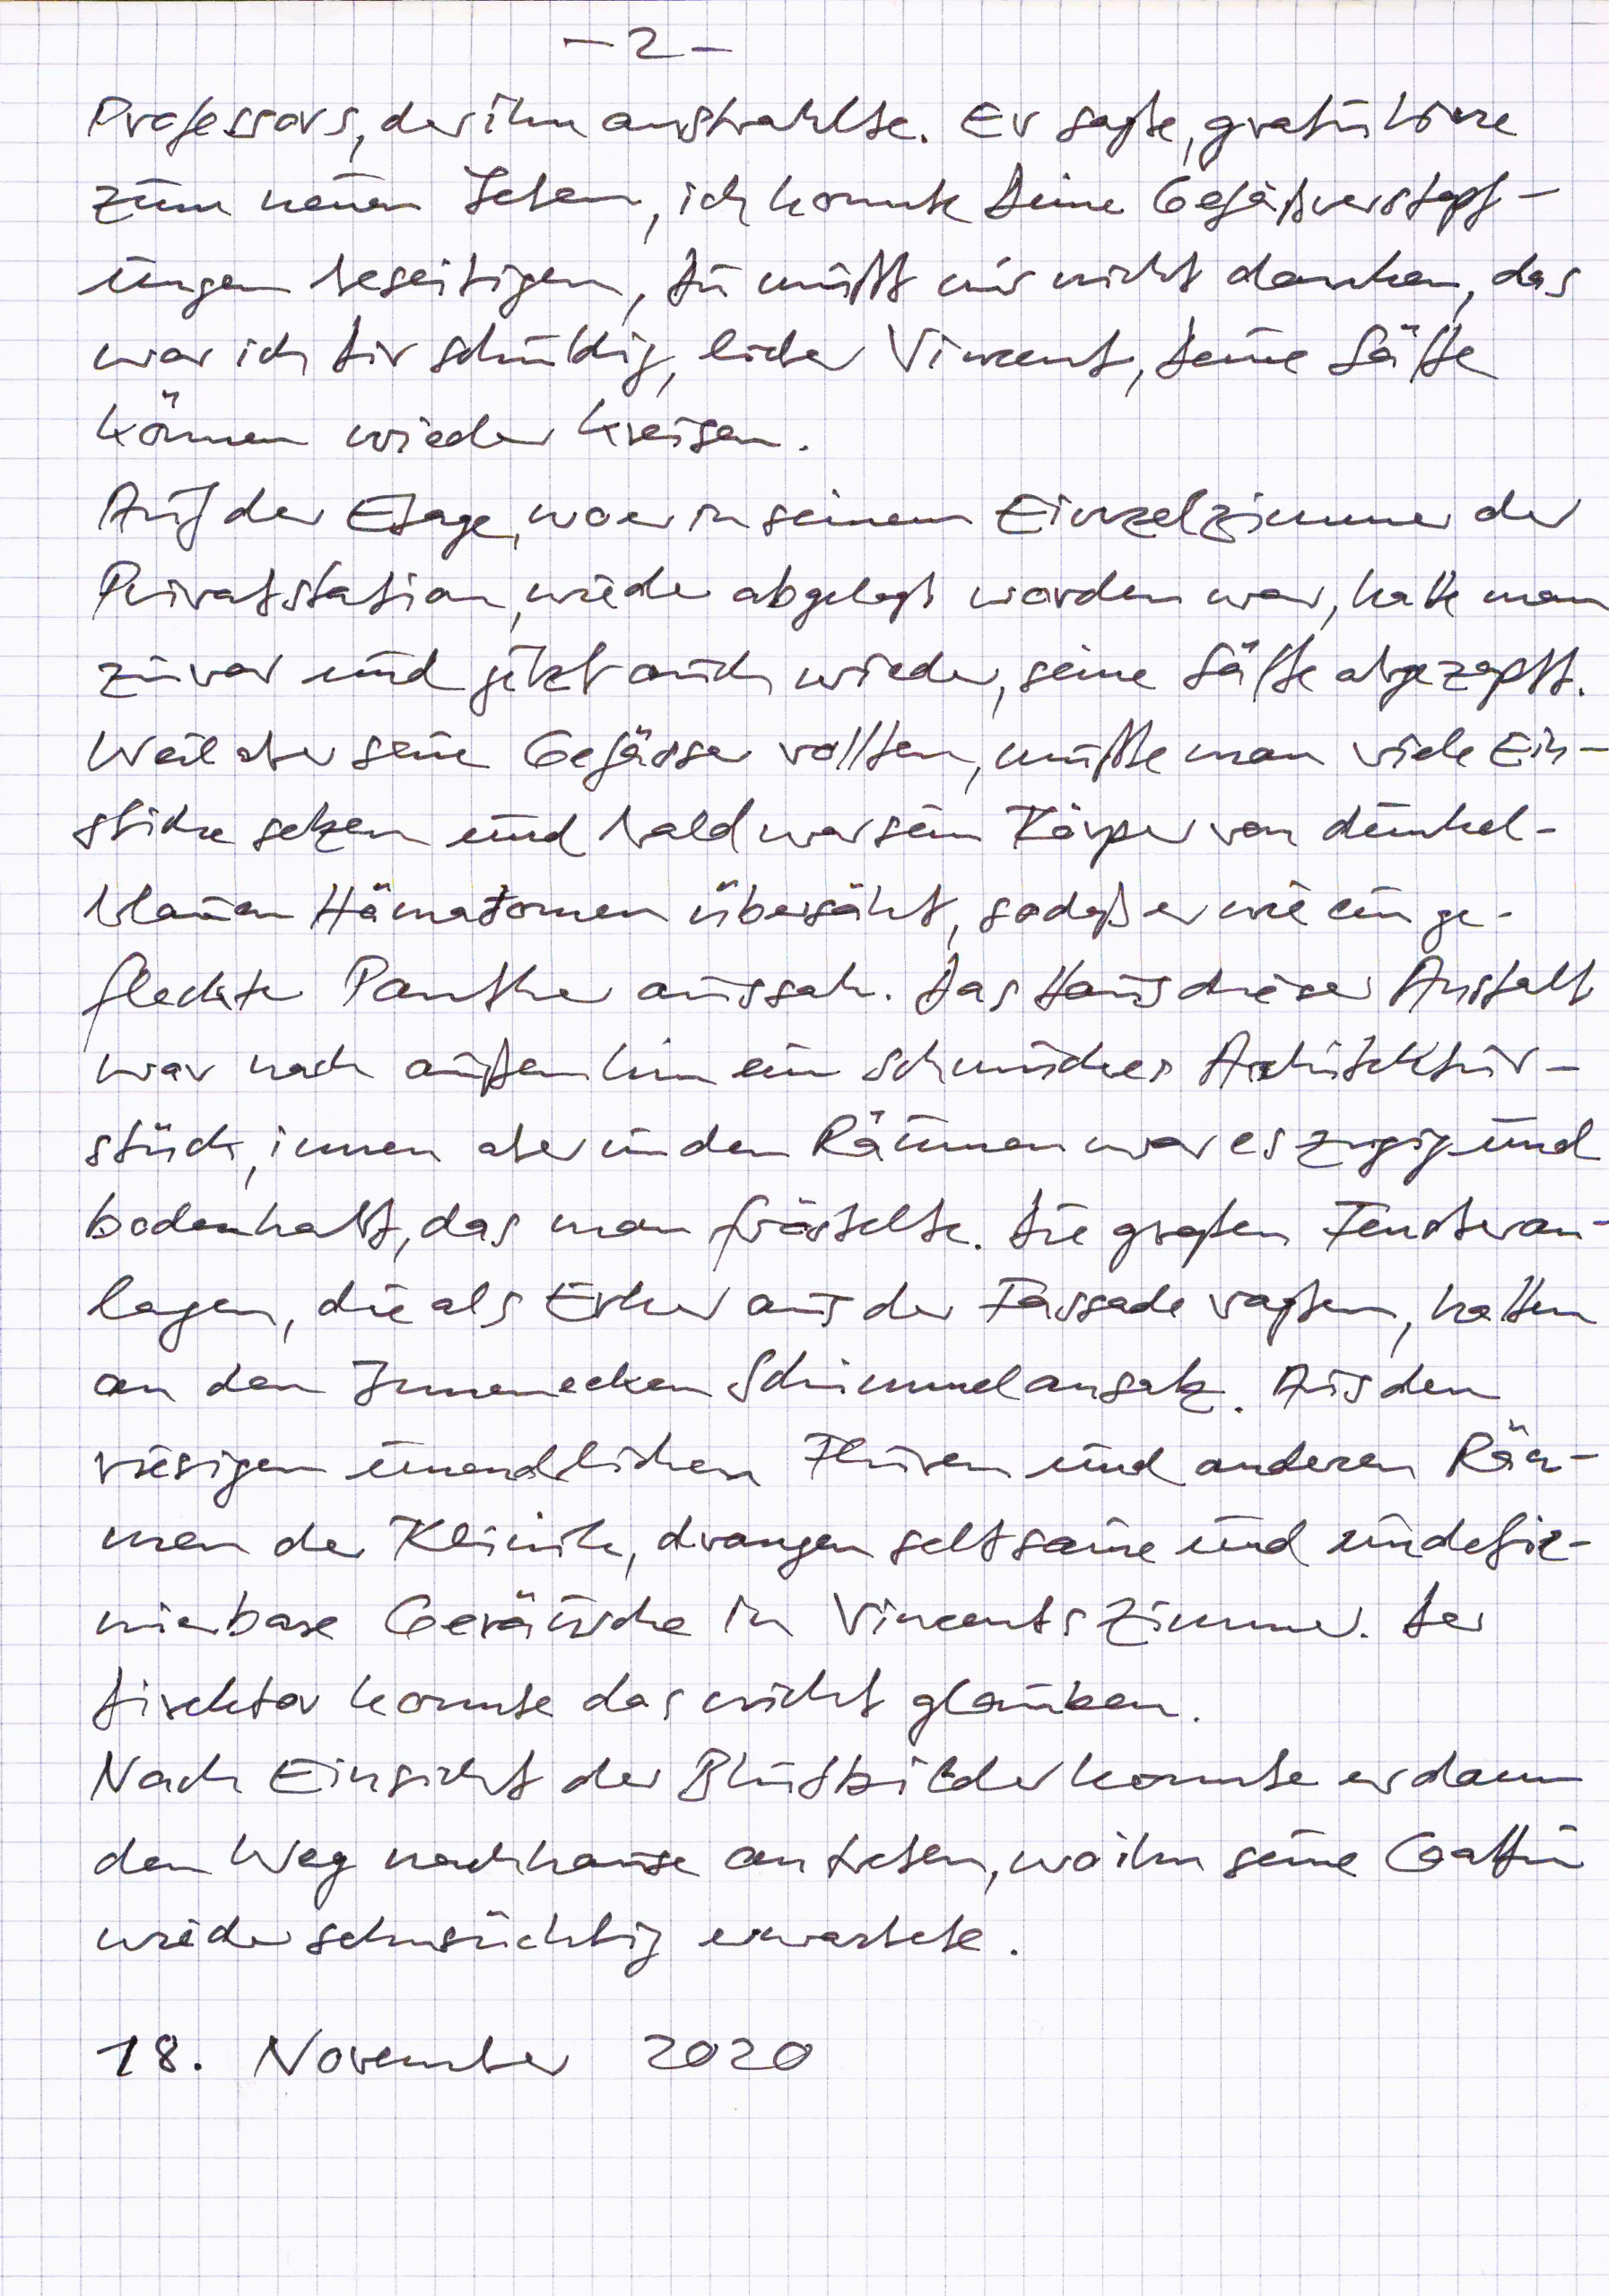 - 2 -
Professors, der ihn anstrahlte. Er sagte, gratuliere
zum neuen Leben, ich konnte Deine Gefäßverstopf-
ungen beseitigen, Du mußt mir nicht danken, das
war ich Dir schuldig, lieber Vincent, Deine Säfte
können wieder kreisen.
Auf der Etage, wo er in seinem Einzelzimmer der
Privatstation, wieder abgelegt worden war, hatte man
zuvor und jetzt auch wieder, seine Säfte abgezapft.
Weil aber seine Gefässe rollten, mußte man viele Ein-
stiche setzen und bald war sein Körper von dunkel-
blauen Hämatomen übersäht, sodaß er wie ein ge-
fleckter Panther aussah. Das Haus dieser Anstalt
war nach außen hin ein schmuckes Architektur-
stück, innen aber in den Räumen war es zugig und
bodenkalt, das man fröstelte. Die großen Fensteran-
lagen, die als Erker aus der Fassade ragten, hatten
an den Innenecken Schimmelansatz. Aus den
riesigen unendlichen Fluren und anderen Räu-
men der Klinik, drangen seltsame und undefi-
nierbare Geräusche in Vincents Zimmer. Der
Direktor konnte das nicht glauben.
Nach Einsicht der Blutbilder konnte er dann
den Weg nachhause antreten, wo ihn seine Gattin
wieder sehnsüchtig erwartete.
18. November 2020